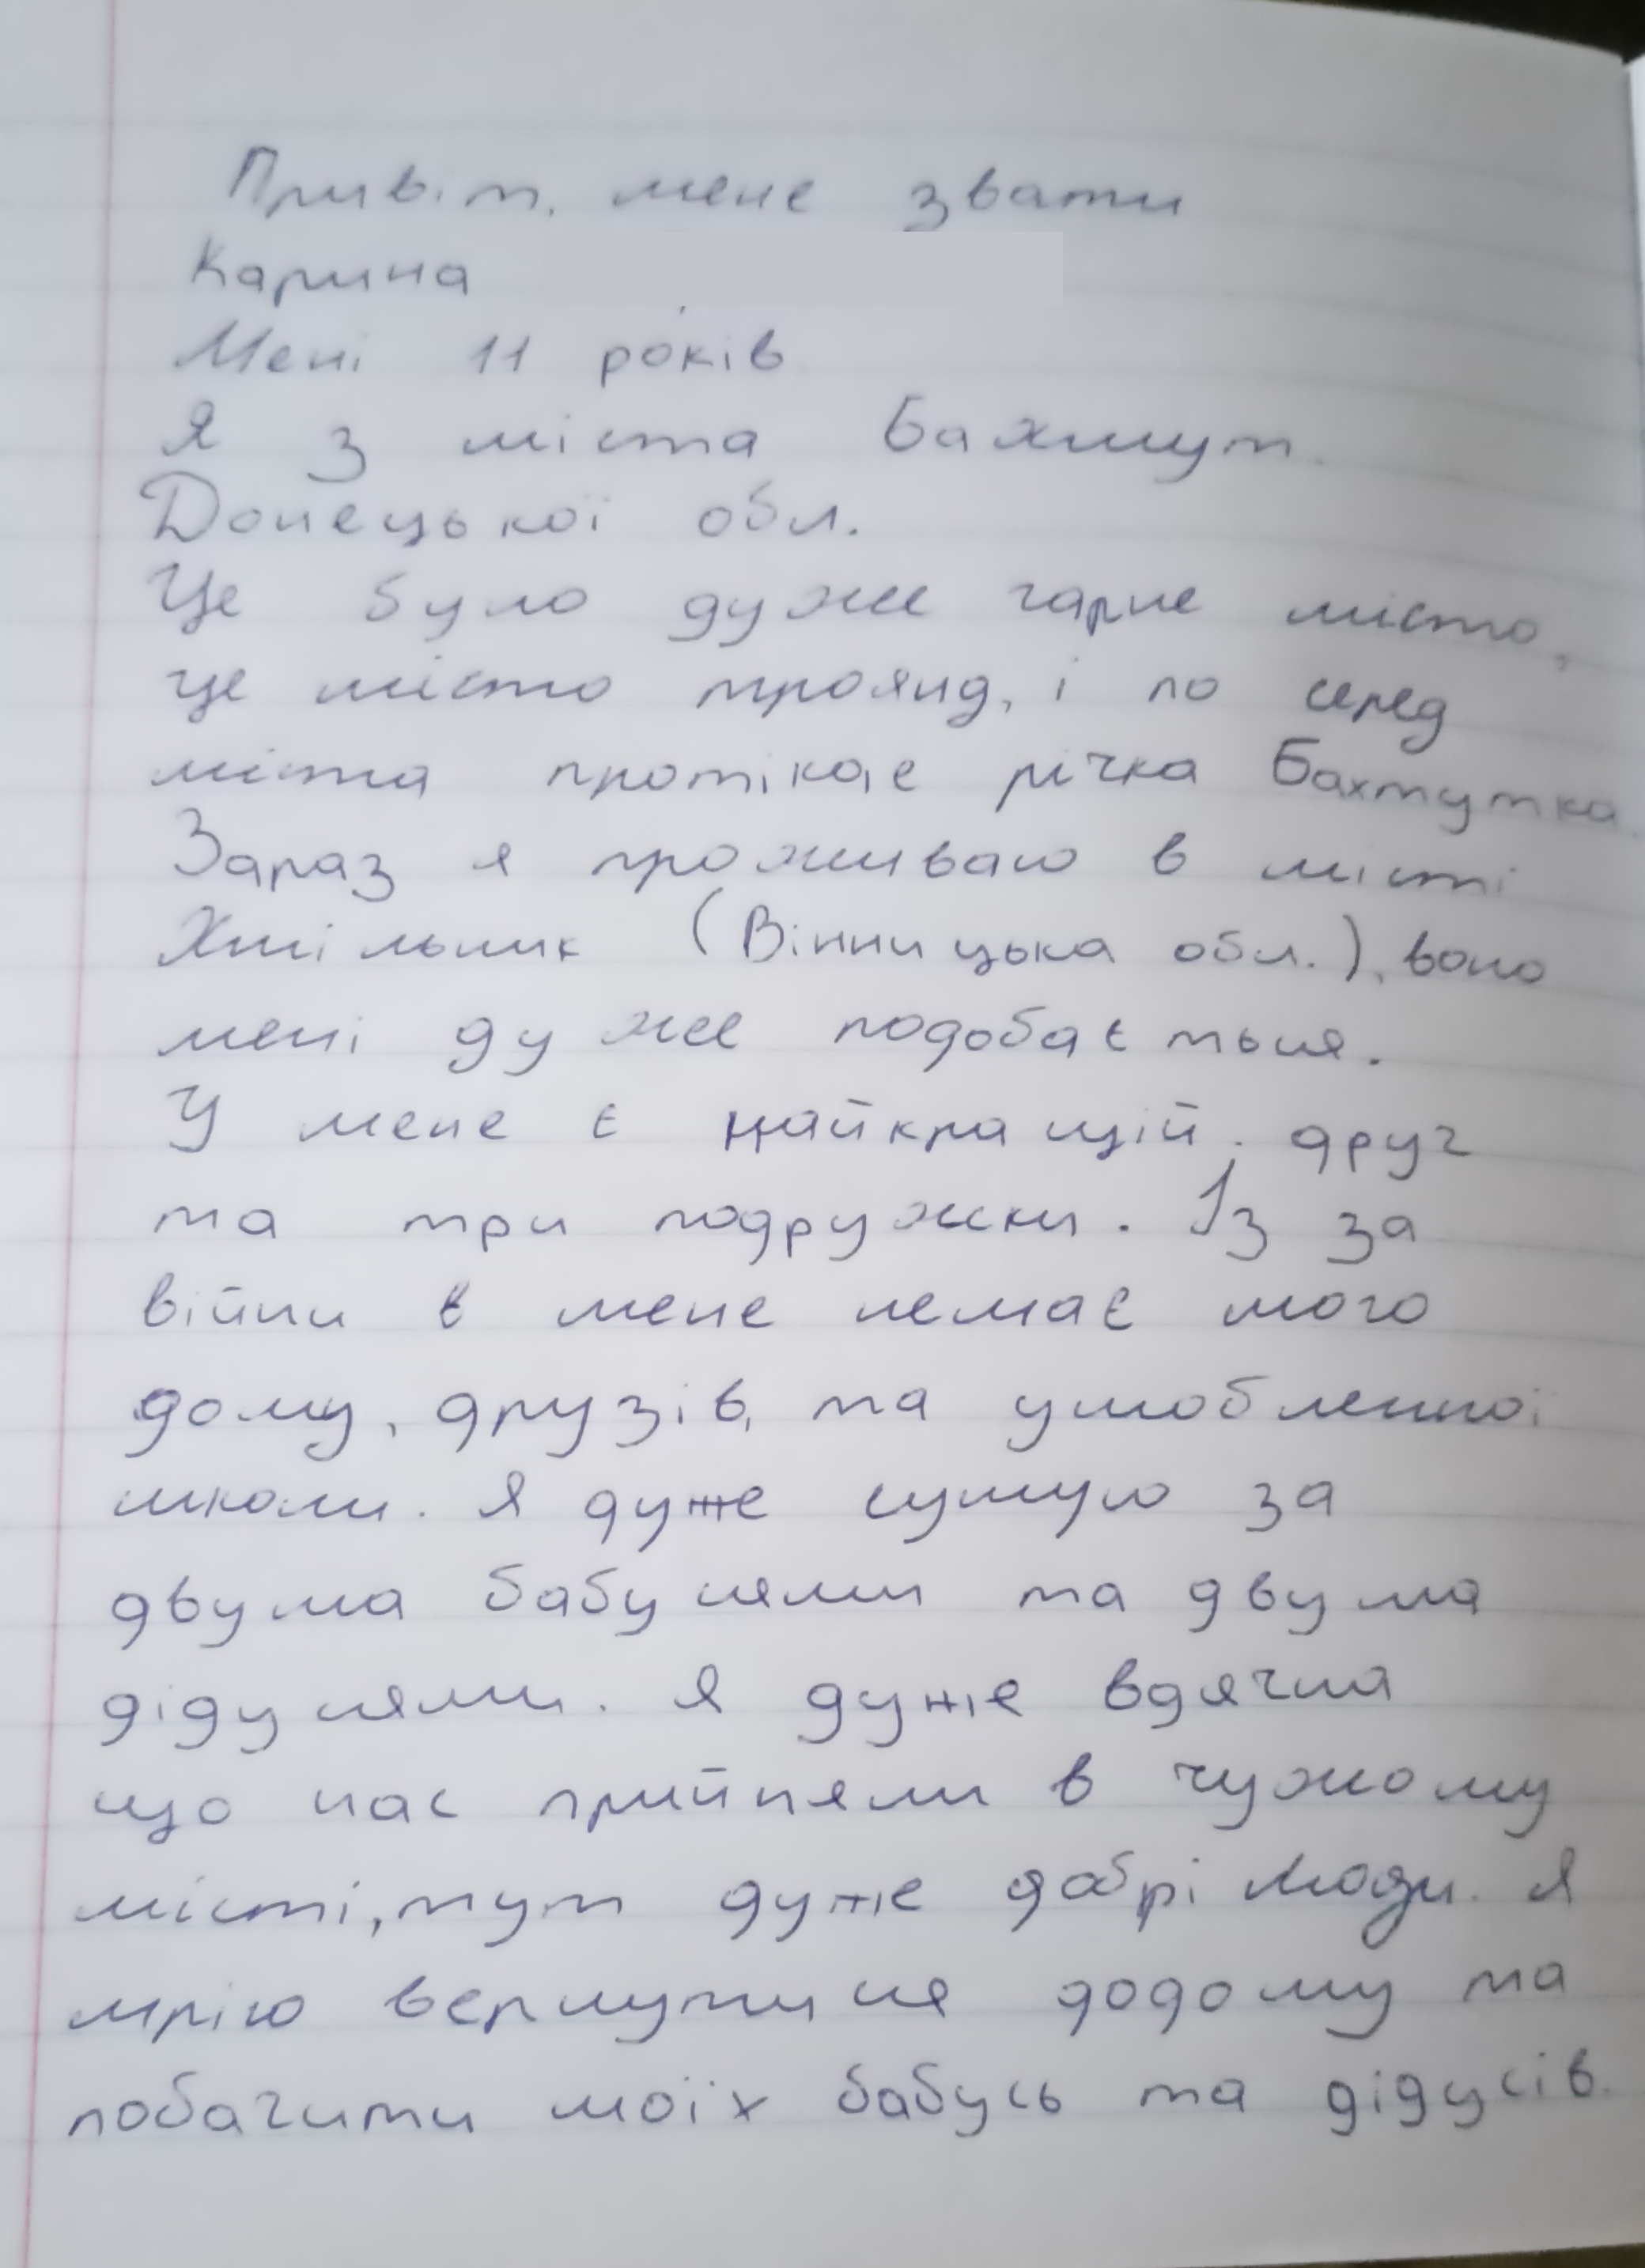 Привіт, мене звати
Карина
Мені 11 років
Я з міста Бахмут.
Донецької обл.
Це було дуже гарне місто,
це місто троянд, і по серед
міста протікає річка Бахмутка.
Зараз я проживаю в місті
Хмільник (Вінницька обл.), воно
мені дуже подобається.
У мене є найкращій друг
та три подружки. Із за
війни в мене немає мого
дому, друзів, та улюбленної
школи. Я дуже сумую за
двума бабусями та двума
дідусями. Я дуже вдячна
що нас прийняли в чужому
місті, тут дуже добрі люди. Я
мрію вернутися додому та
побачити моїх бабусь та дідусів.